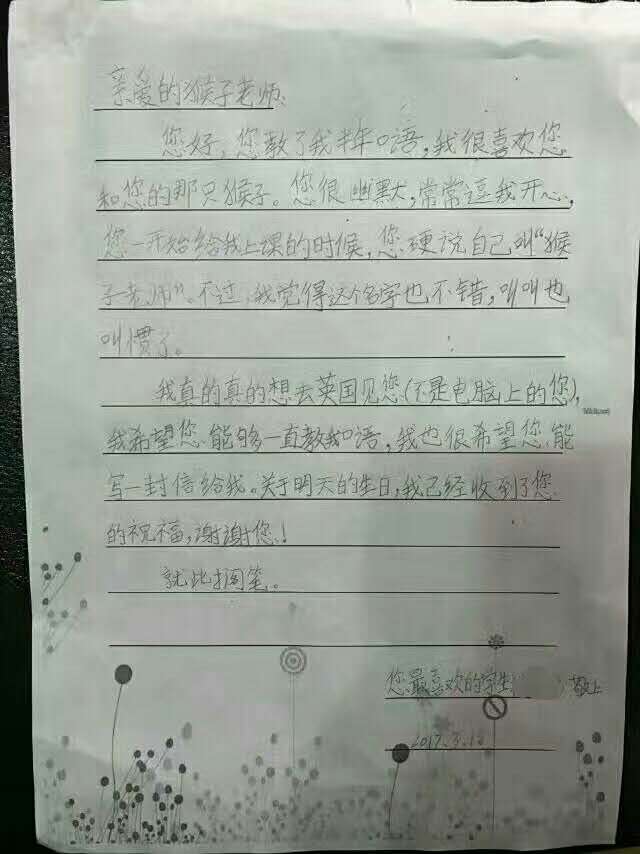 亲爱的猴子老师:
您好,您教了我半年口语,我很喜欢您
和您的那只猴子。您很幽默,常常逗我开心,
您一开始给我上课的时候,您硬说自己叫“猴
子老师”。不过,我觉得这个名字也不错,叫叫也
叫惯了。
我真的真的想去英国见您(不是电脑上的您),
我希望您能够一直教我口语,我也很希望您能
写一封信给我。关于明天的生日,我已经收到了您
的祝福,谢谢您!
就此搁笔。
您最喜欢的学生: 敬上
2017.3.